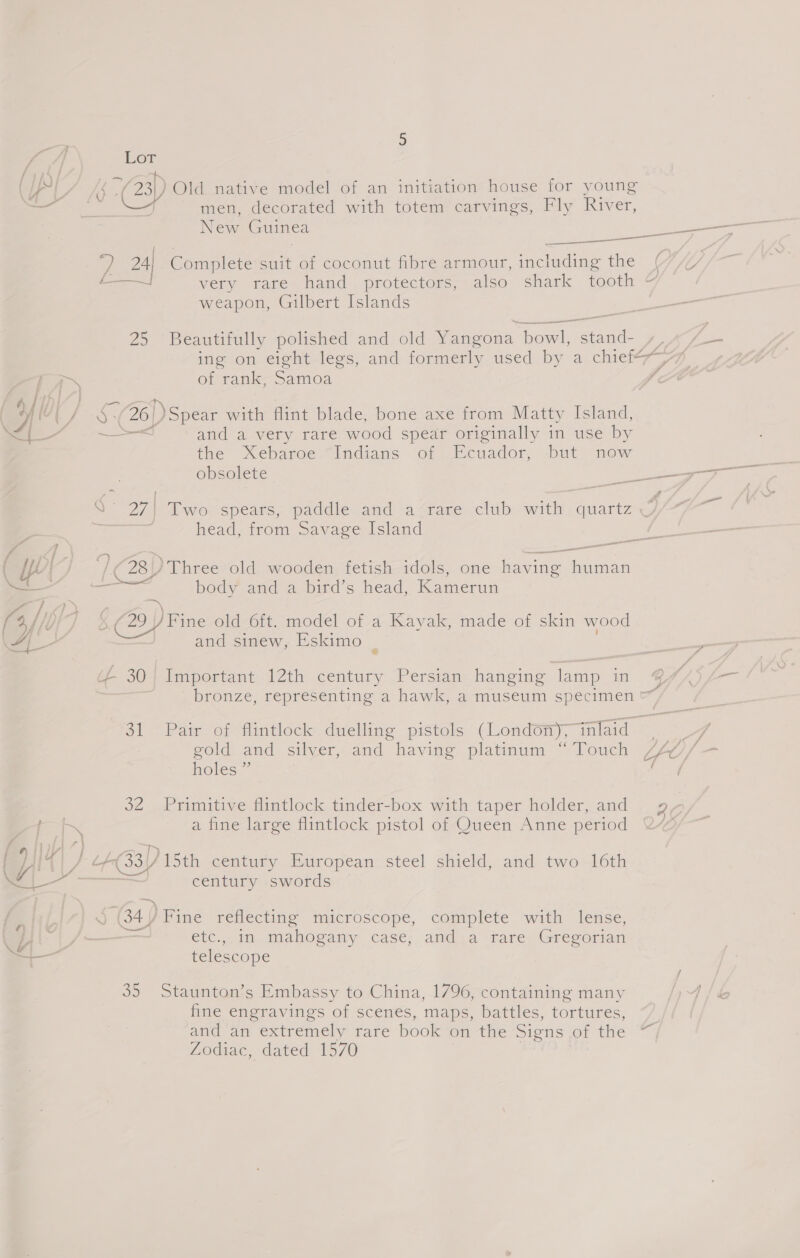 5
Lot
23 Old native model of an initiation house for young
men, decorated with totem carvings, Fly River,
New Guinea
24 Complete suit of coconut fibre armour, including the
very rare hand protectors, also shark tooth
weapon, Gilbert Islands
25 Beautifully polished and old Yangona bowl, stand-
ing on eight legs, and formerly used by a chief
of rank, Samoa
26 Spear with flint blade, bone axe from Matty Island,
and a very rare wood spear originally in use by
the Xebaroe Indians of Ecuador, but now
obsolete
27 Two spears, paddle and a rare club with quartz
head, from Savage Island
28 Three old wooden fetish idols, one having human
body and a bird's head, Kamerun
29 Fine old 6ft. model of a Kayak, made of skin wood
and sinew, Eskimo
30 Important 12th century Persian hanging lamp in
bronze, representing a hawk, a museum specimen
31 Pair of flintlock duelling pistols (London), inlaid
gold and silver, and having platinum “ Touch
holes ”
32 Primitive flintlock tinder-box with taper holder, and
a fine large flintlock pistol of Queen Anne period
33 15th century European steel shield, and two 16th
century swords
34 Fine reflecting microscope, complete with lense,
etc., in mahogany case, and a rare Gregorian
telescope
35 Staunton's Embassy to China, 1796, containing many
fine engravings of scenes, maps, battles, tortures,
and an extremely rare book on the Signs of the
Zodiac, dated 1570